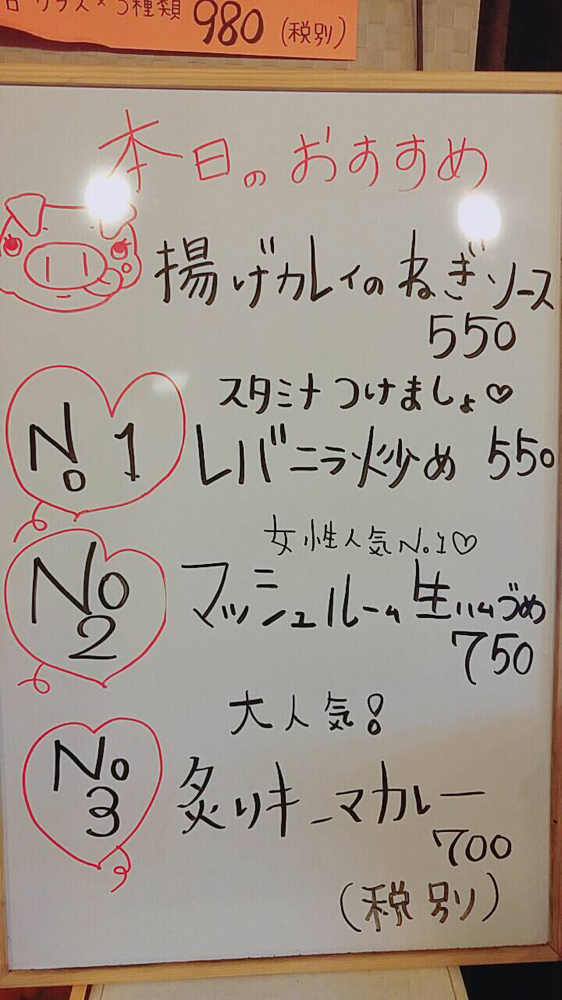 グラス×3種類 980(税別)
本日のおすすめ
揚げカレイのねぎソース
550
スタミナつけましょ♡
No 1 レバニラ炒め 550
女性人気No.1♡
No 2 マッシュルーム生ハムづめ
750
大人気!
No 3 炙りキーマカレー
700
(税別)